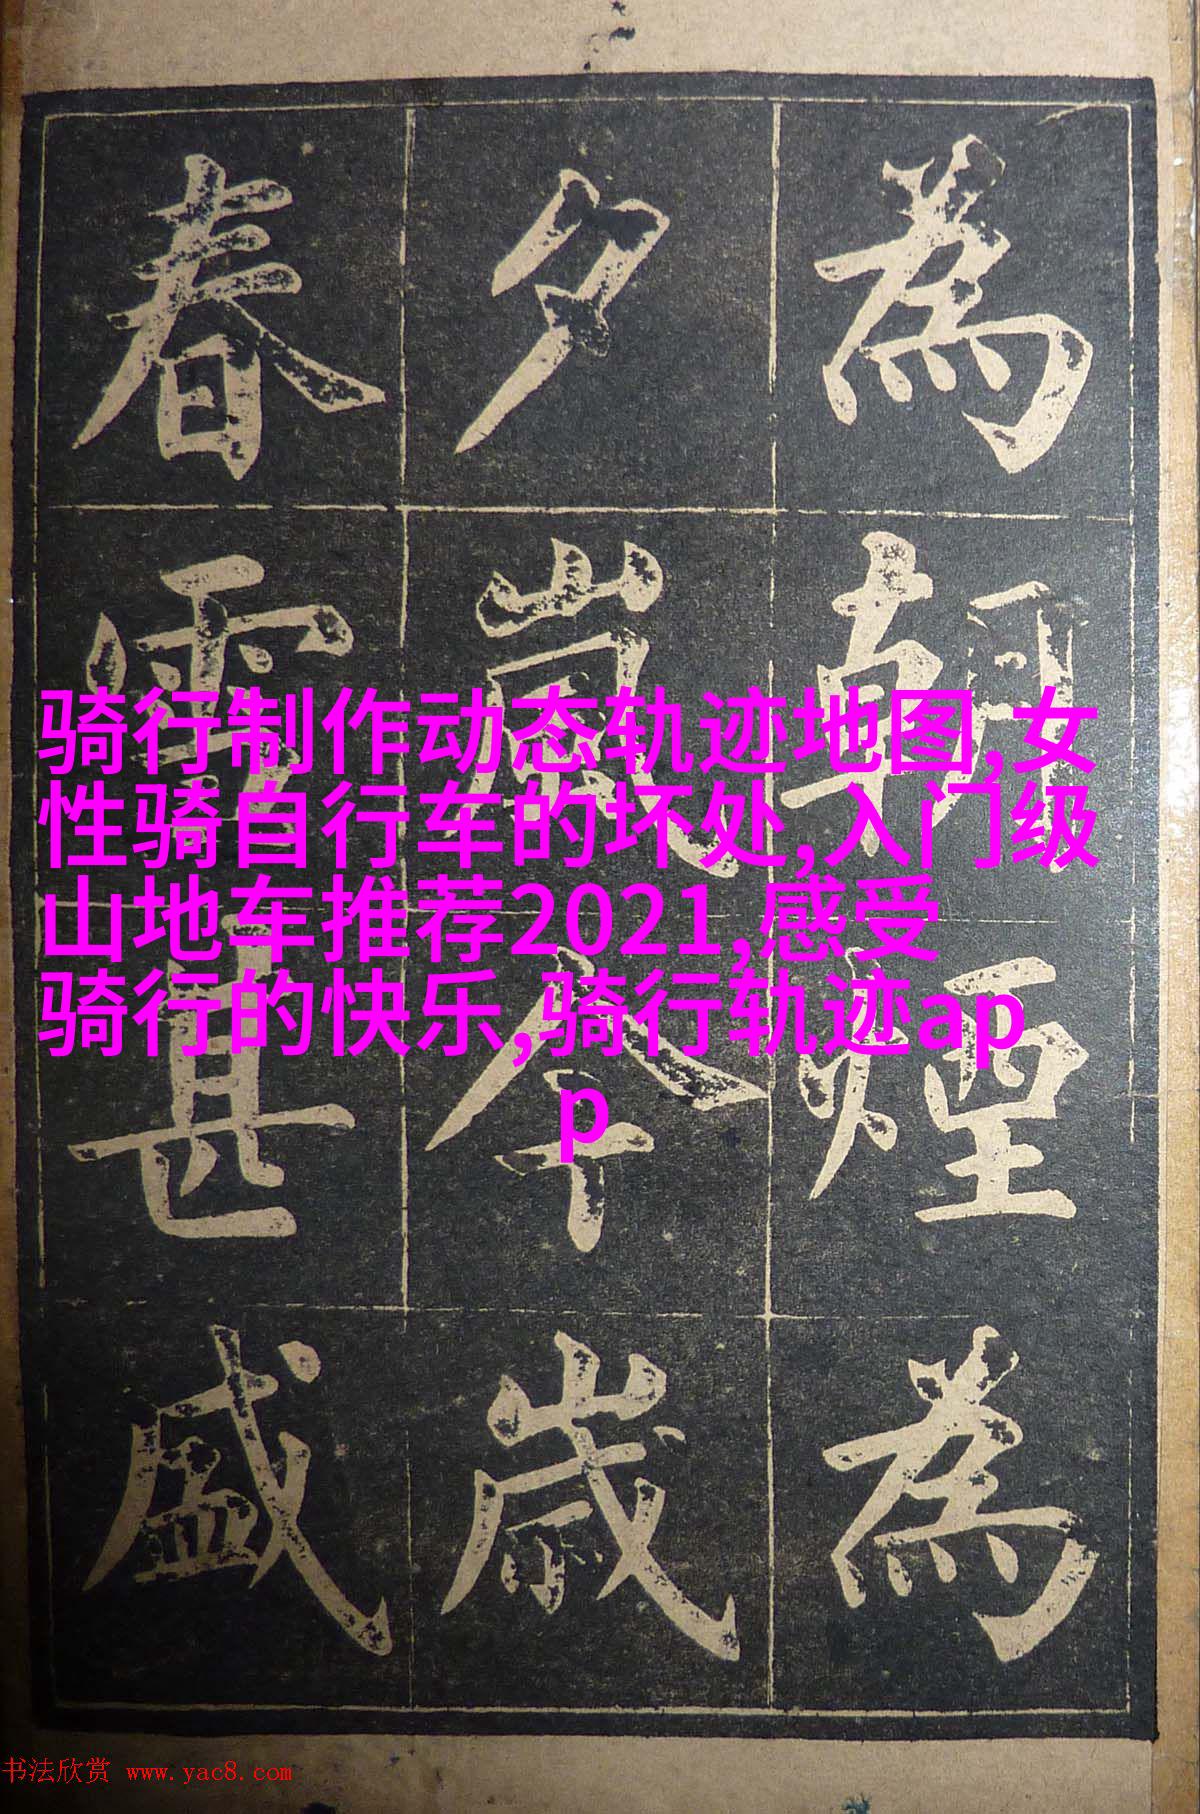 為朝煙為
夕嵐今歲
春雪甚盛
骑行制作动态轨迹地图,女
性骑自行车的坏处,入门级
山地车推荐2021,感受
骑行的快乐,骑行轨迹ap
p
书法欣赏 www.yac8.com